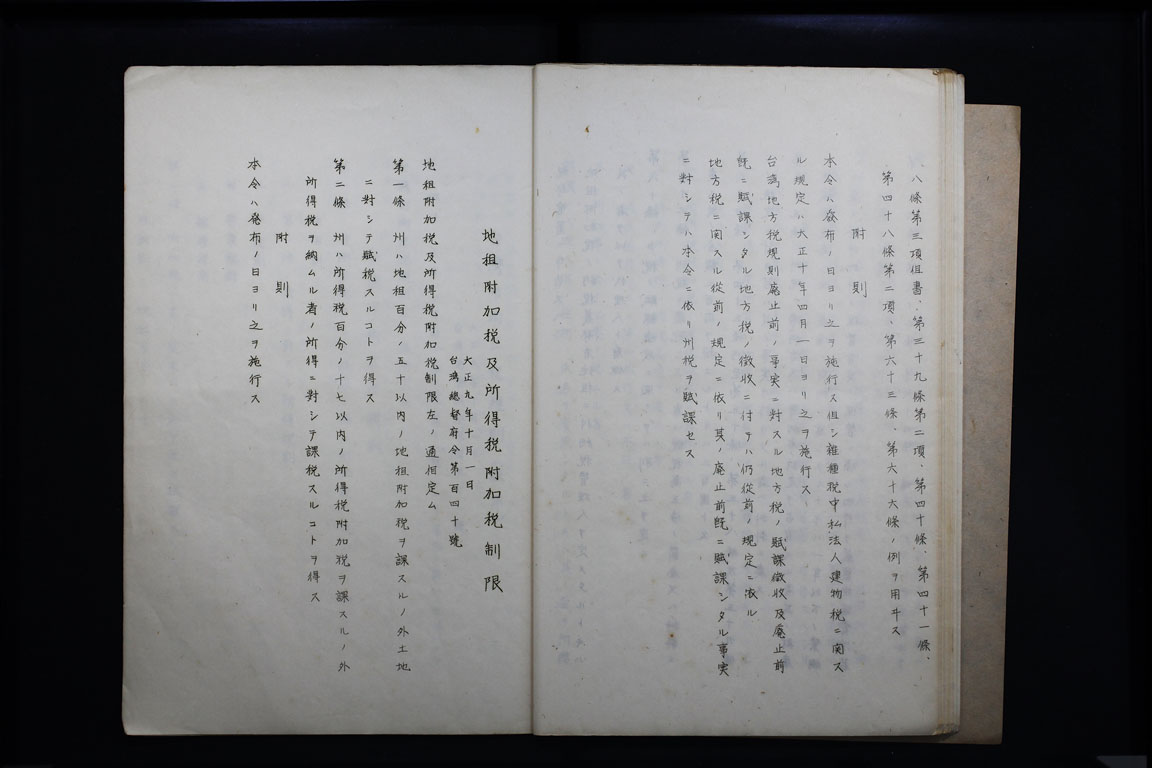 八條第三項但書、第三十九條第二項、第四十條、第四十一條、
第四十八條第二項、第六十三條、第六十六條ノ例ヲ用ヰス
附則
本令ハ發布ノ日ヨリ之ヲ施行ス但シ雜種税中私法人建物税ニ関ス
ル規定ハ大正十年四月一日ヨリ之ヲ施行ス
台湾地方税規則廃止前ノ事実ニ対スル地方税ノ賦課徴收及廃止前
既ニ賦課シタル地方税ノ徴收ニ付テハ仍從前ノ規定ニ依ル
地方税ニ関スル從前ノ規定ニ依リ其ノ廃止前既ニ賦課シタル事実
ニ對シテハ本令ニ依リ州税ヲ賦課セス
地租附加税及所得税附加税制限
大正九年十月一日
台湾總督府令第百四十號
地租附加税及所得税附加税制限左ノ通相定ム
第一條 州ハ地租百分ノ五十以内ノ地租附加税ヲ課スルノ外土地
ニ對シテ賦税スルコトヲ得ス
第二條 州ハ所得税百分ノ十七以内ノ所得税附加税ヲ課スルノ外
所得税ヲ納ムル者ノ所得ニ對シテ課税スルコトヲ得ス
附則
本令ハ発布ノ日ヨリ之ヲ施行ス